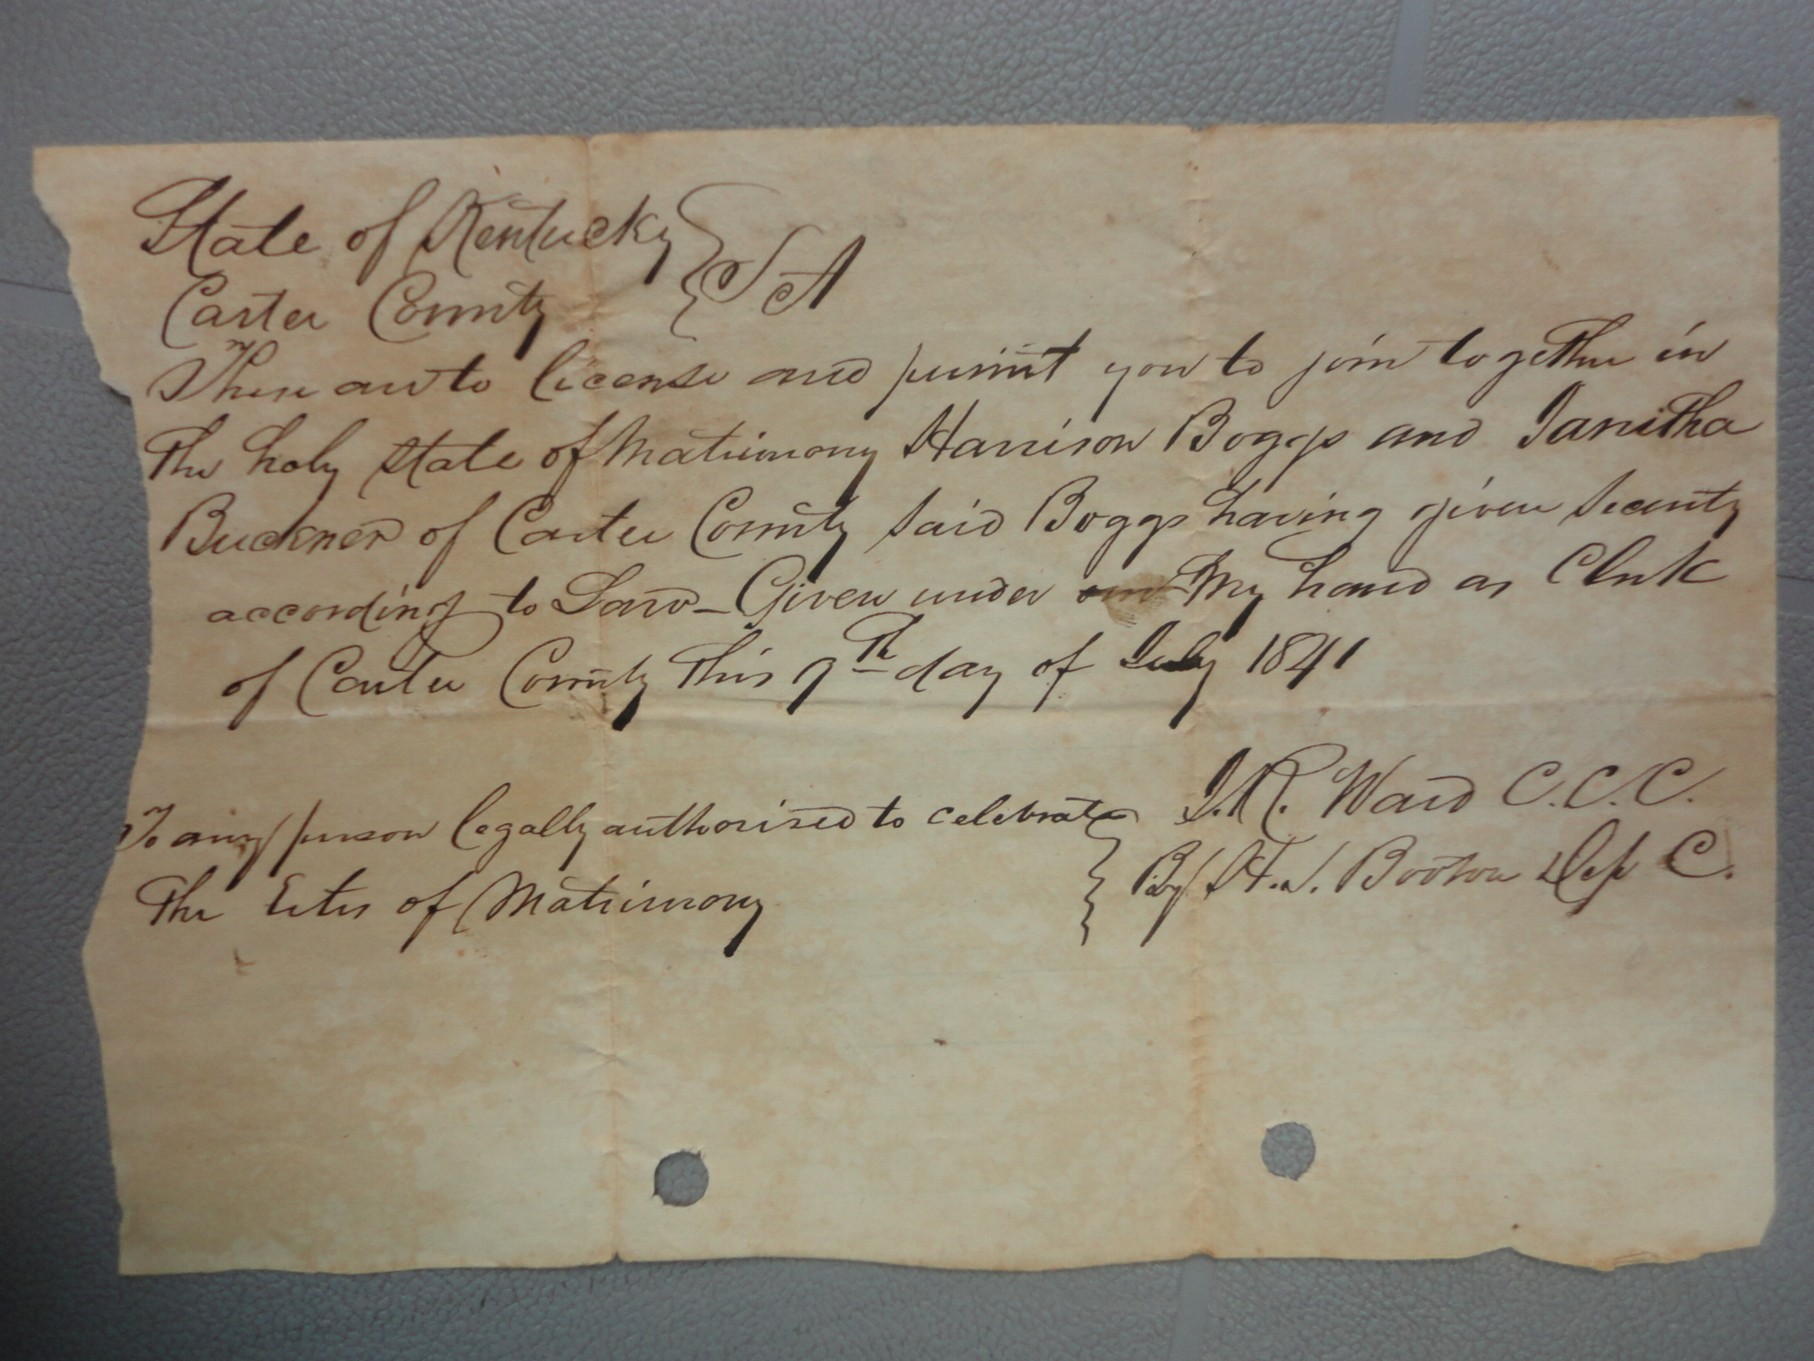 State of Kentucky
Carter County } SA
These are to license and permit you to join together in
the holy state of Matrimony Harrison Boggs and Janitha
Buckner of Carter County said Boggs having given security
according to Law – Given under my hand as Clerk
of Carter County this 9th day of July 1841
J. R. Ward C.C.C.
To any person legally authorised to celebrate }
By H. J. Booton Dep C.
the Rites of Matrimony